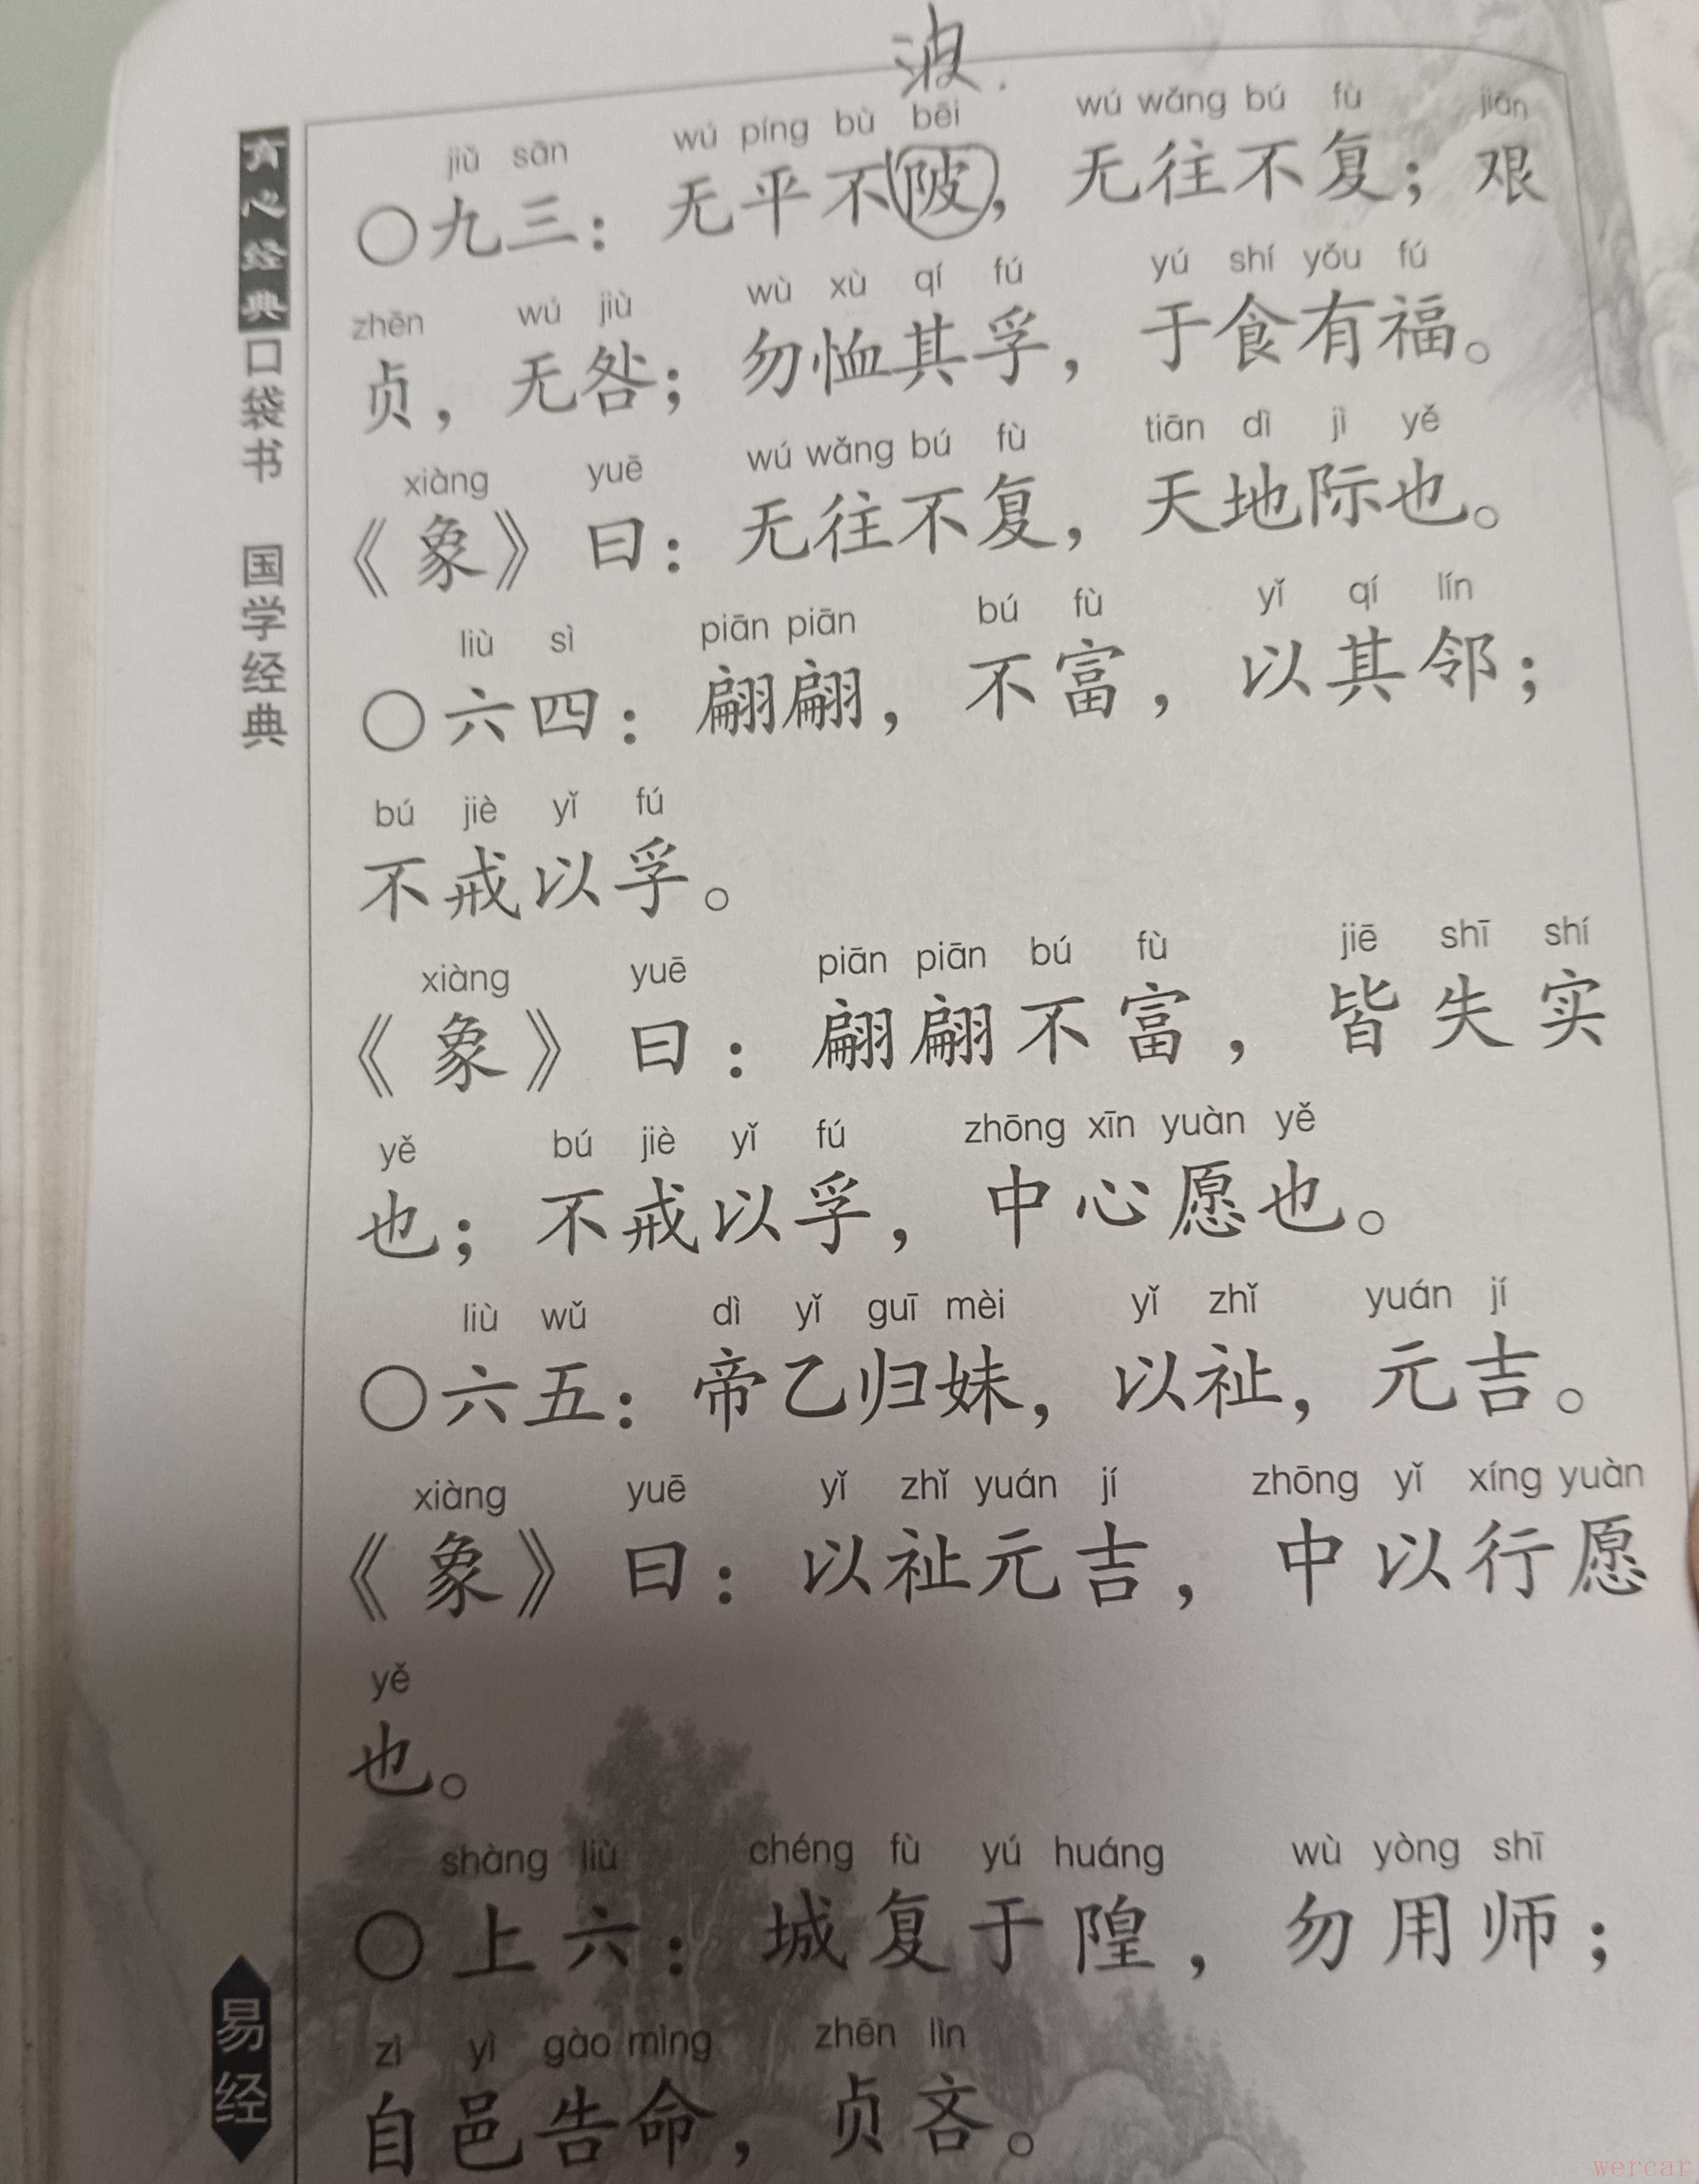 波.
jiǔ sān wú píng bù bēi wú wǎng bú fù jiān
○九三：无平不陂，无往不复；艰
zhēn wú jiù wù xù qí fú yú shí yǒu fú
贞，无咎；勿恤其孚，于食有福。
xiàng yuē wú wǎng bú fù tiān dì jì yě
《象》曰：无往不复，天地际也。
liù sì piān piān bú fù yǐ qí lín
○六四：翩翩，不富，以其邻；
bú jiè yǐ fú
不戒以孚。
xiàng yuē piān piān bú fù jiē shī shí
《象》曰：翩翩不富，皆失实
yě bú jiè yǐ fú zhōng xīn yuàn yě
也；不戒以孚，中心愿也。
liù wǔ dì yǐ guī mèi yǐ zhǐ yuán jí
○六五：帝乙归妹，以祉，元吉。
xiàng yuē yǐ zhǐ yuán jí zhōng yǐ xíng yuàn
《象》曰：以祉元吉，中以行愿
yě
也。
shàng liù chéng fù yú huáng wù yòng shī
○上六：城复于隍，勿用师；
zì yì gào mìng zhēn lìn
自邑告命，贞吝。
育心经典口袋书 国学经典
易经
wercar